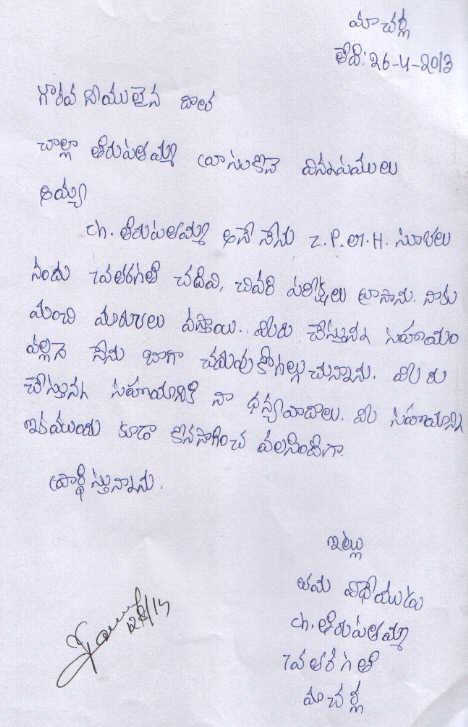 మాచర్ల
తేది: 26-4-2013
గౌరవనీయులైన దాత
చాల్లా తిరుపతమ్మ వ్రాసుకొనె విన్నపములు
అయ్య
ch. తిరుపతమ్మ అనే నేను Z. P. G. H. స్కూలు
నందు 7వతరగతి చదివి, చివరి పరీక్షలు వ్రాసాను. నాకు
మంచి మార్కులు వస్తాయి. మీరు చేస్తున్న సహాయం
వల్లనే నేను బాగా చదువుకోగల్గుచున్నాను. మీరు
చేస్తున్న సహాయానికి నా ధన్యవాదాలు. మీ సహాయాన్ని
ఇకముందు కూడా కొనసాగించ వలసిందిగా
ప్రార్థిస్తున్నాను.
ఇట్లు
తమ విధేయుడు
ch. తిరుపతమ్మ
7వ తరగతి
మాచర్ల